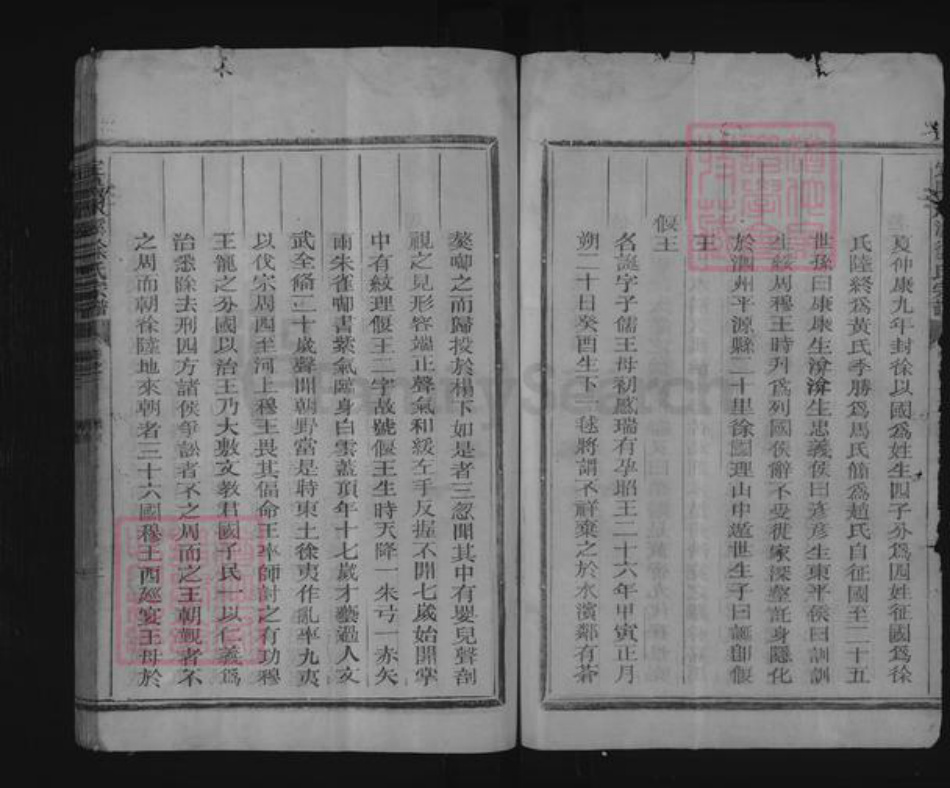 夏仲康九年封徐以國爲姓生四子分爲四姓征國爲徐
氏陸終爲黃氏季勝爲馬氏脩爲趙氏自征國至二十五
世孫曰康康生渰渰生忠義侯曰彥彥生東平侯曰訓訓
生綏周穆王時列爲列國侯辭不受徙家深壑託身隱化
於泗州平源縣二十里徐國理山中遁世生子曰誕卽偃
王
偃王
名誕字子儒王母初感瑞有孕昭王二十六年甲寅正月
朔二十日癸酉生下一毬將謂不祥棄之於水濱鄰有蒼
獒啣之而歸投於榻下如是者三忽聞其中有嬰兒聲剖
視之見形容端正聲氣和緩左手反握不開七歲始開掌
中有紋理偃王二字故號偃王生時天降一朱弓一赤矢
雨朱雀啣書紫氣臨身白雲蓋頂年十七歲才藝過人文
武全備二十歲聲聞朝野當是時東土徐夷作亂率九夷
以伐宗周西至河上穆王畏其偪命王率師討之有功穆
王寵之分國以治王乃大敷文教君國子民一以仁義爲
治悉除去刑四方諸侯爭訟者不之周而之王朝覲者不
之周而朝徐陸地來朝者三十六國穆王西廵宴王母於